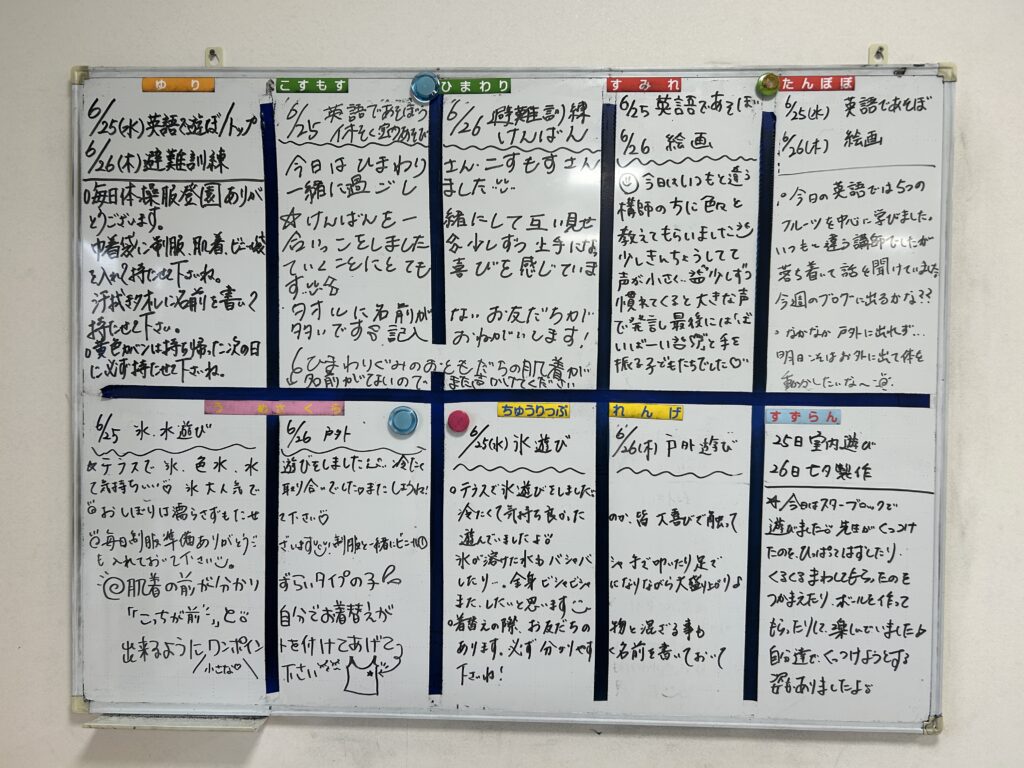 ゆり
6/25(水)英語で遊ぼ/トップ
6/26(木)避難訓練
○毎日体操服登園ありが
とうございます。
巾着袋に制服、肌着、ビニール袋
を入れて持たせて下さいね。
汗拭きタオルに名前を書いて
持たせて下さい。
○黄色カバンは持ち帰った次の日
に必ず持たせて下さいね。
こすもす ひまわり
6/25 英語であそぼう
6/26 避難訓練
けんばん
今日はひまわりさん・こすもすさん
一緒に過ごしました
☆けんばんを一緒にして互い見せ
合いっこをしました 少しずつ上手にな
ていくことにとても喜びを感じていま
す
タオルに名前がないお友だちが
多いです 記入おねがいします!
ひまわりぐみのおともだちの肌着が
名前がないので
すみれ
6/25 英語であそぼ
6/26 絵画
今日はいつもと違う
講師の方に色々と
教えてもらいました
少しきんちょうしてて
声が小さく 少しずつ
慣れてくると大きな声
で発言し最後には「ば
いばーい」と手を
振る子どもたちでした♡
たんぽぽ
6/25(水) 英語であそぼ
6/26(木) 絵画
○今日の英語では5つの
フルーツを中心に学びました。
いつもと違う講師でしたが
落ち着いて話を聞けていました
今週のブログに出るかな??
○なかなか戸外に出れず…
明日こそはお外に出て体を
動かしたいな〜
うめ さくら
6/25 氷、水遊び
6/26 戸外
☆テラスで氷、色水、水遊びをしました 冷たく
て気持ちいい♡ 氷大人気で取り合いでした またしようね!
おしぼりは濡らさずもたせて下さい
毎日制服準備ありがとうございます 制服と一緒にビニール①
も入れておいて下さい。
@肌着の前が分かりずらいタイプの子
「こっちが前」と 自分でお着替えが
出来るようにワンポイントを付けてあげて
小さな♡
下さい
ちゅうりっぷ れんげ
6/25(水)氷遊び
6/26(木)戸外遊び
○テラスで氷遊びをしました
冷たくて気持ち良かったのか、皆大喜びで触って
遊んでいましたよ
氷が溶けた水もバシャバシャ手で叩いたり足で
したり…全身ビシャビシャになりながら大盛り上がり♪
また、したいと思います
○着替えの際、お友だちの物と混ざる事も
あります。必ず分かりやすく名前を書いておいて
下さいね!
すずらん
25日 室内遊び
26日 七夕製作
☆今日はスターブロックで
遊びました 先生がくっつけ
たのを、ひっぱってはずしたり、
くるくるまわしてもらったのを
つかまえたり、ボールを作って
もらったりして、楽しんでいました♪
自分達でくっつけようとする
姿もありましたよ